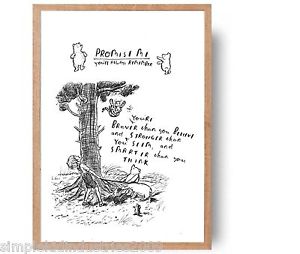 PROMISE ME
YOU'LL ALWAYS REMEMBER
YOU'RE
BRAVER than you BELIEVE
and STRONGER than
YOU SEEM, and
SMARTER than you
THINK